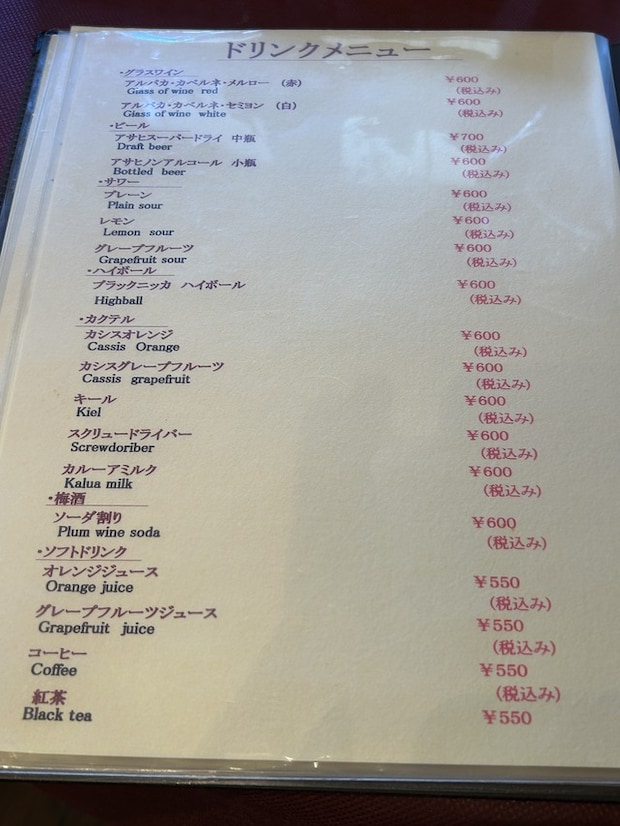 ドリンクメニュー
・グラスワイン
アルパカ・カベルネ・メルロー (赤) ¥600
Glass of wine red (税込み)
アルパカ・カベルネ・セミヨン (白) ¥600
Glass of wine white (税込み)
・ビール
アサヒスーパードライ 中瓶 ¥700
Draft beer (税込み)
アサヒノンアルコール 小瓶 ¥600
Bottled beer (税込み)
・サワー
プレーン ¥600
Plain sour (税込み)
レモン ¥600
Lemon sour (税込み)
グレープフルーツ ¥600
Grapefruit sour (税込み)
・ハイボール
ブラックニッカ ハイボール ¥600
Highball (税込み)
・カクテル
カシスオレンジ ¥600
Cassis Orange (税込み)
カシスグレープフルーツ ¥600
Cassis grapefruit (税込み)
キール ¥600
Kiel (税込み)
スクリュードライバー ¥600
Screwdoriber (税込み)
カルーアミルク ¥600
Kalua milk (税込み)
・梅酒
ソーダ割り ¥600
Plum wine soda (税込み)
・ソフトドリンク
オレンジジュース ¥550
Orange juice (税込み)
グレープフルーツジュース ¥550
Grapefruit juice (税込み)
コーヒー ¥550
Coffee (税込み)
紅茶 ¥550
Black tea